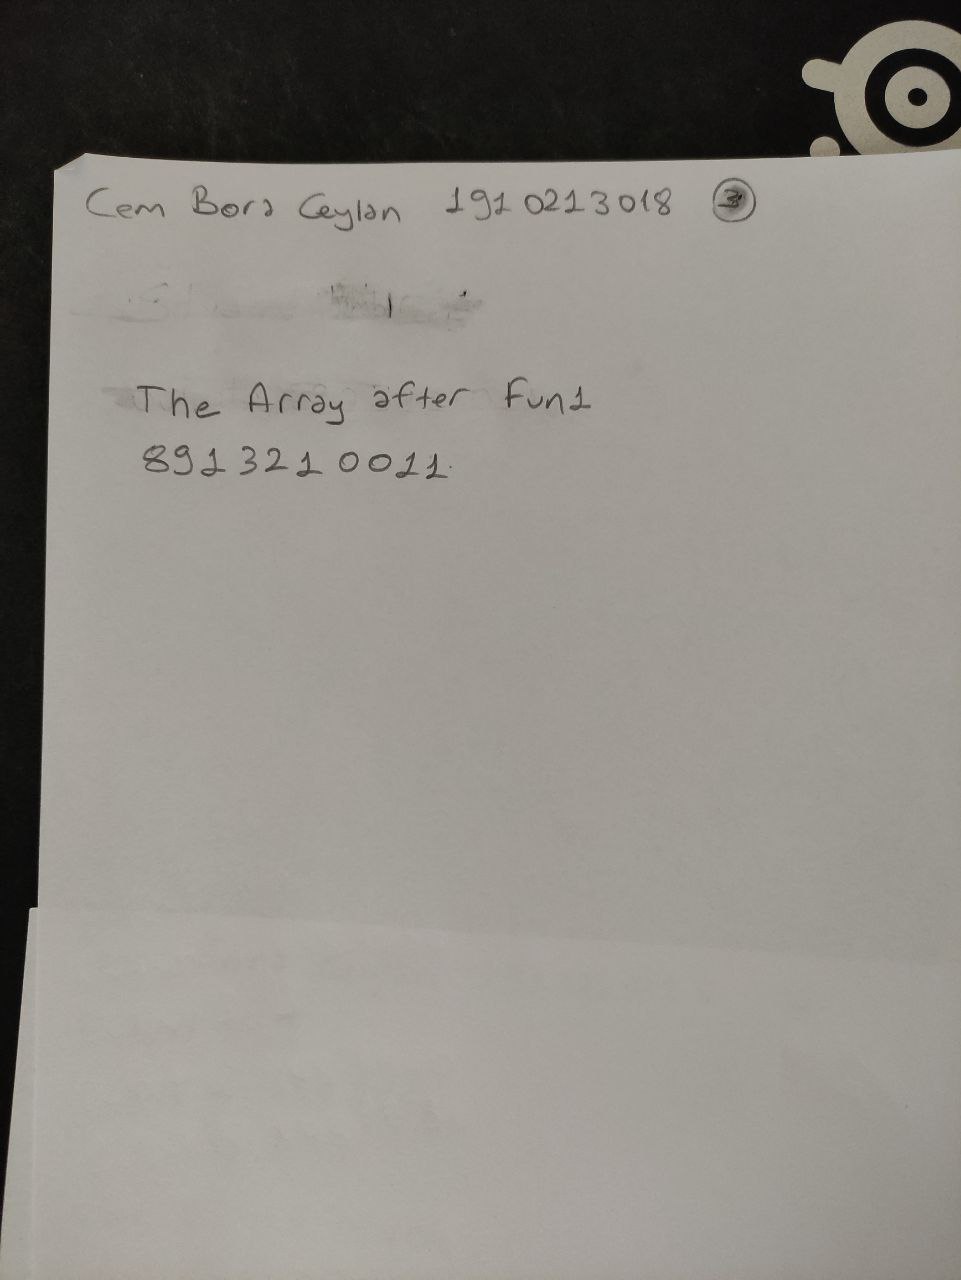 Cem Bora Ceylan 1910213018 3
The Array after Fun1
8913210011